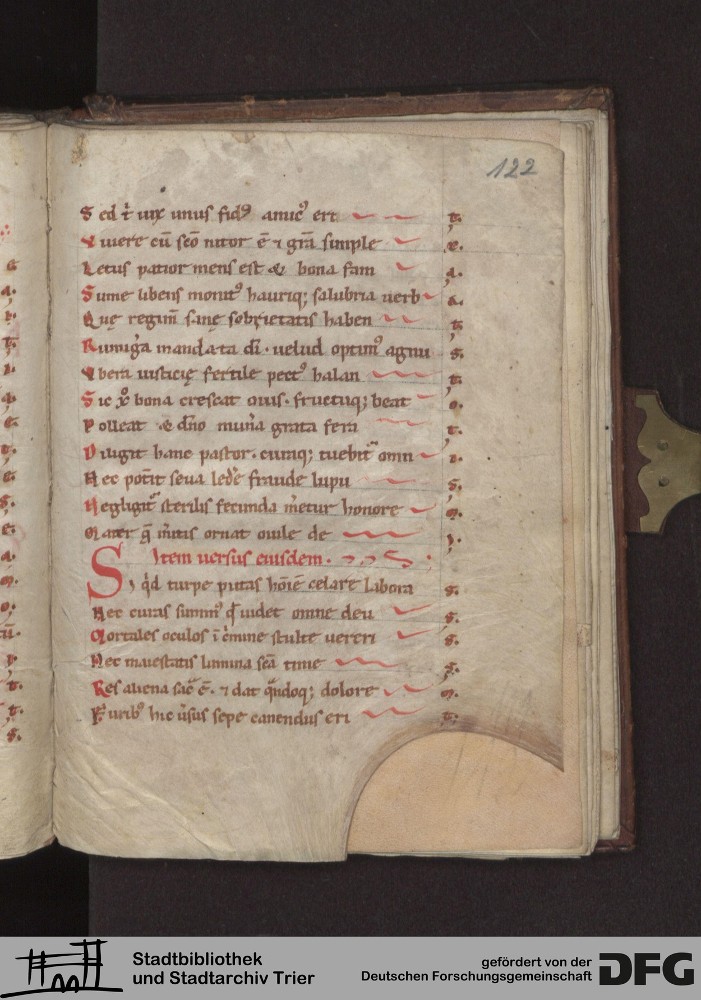 122
Sed t̄ uix unus fid⁹ amic⁹ eri t.
Viuere cū scō nitor ē ⁊ grā simple x.
Letus patior mens est & bona fam a.
Sume libens monit⁹ hauriq; salubria uerb a.
Quę regim̄ sanę sobrietatis haben t.
Rumiga mandata dī. uelud optim⁹ agnu s.
Vbera iusticię fertile pect⁹ halan t.
Sic x̄p bona crescat ouis. fructuq; beat o.
Polleat & dn̄o mun̄a grata fera t.
Diligit hanc pastor. curaq; tuebit᷑ omn i.
Nec potīt seua ledere fraude lupu s.
Negligit᷑ sterilis fecunda m̄etur honore m.
Mater ḡ mitis ornat ouile de i.
Item uersus eiusdem.
Si, qd turpe putas hōiē celare labora s.
Nec curas summ̄ qđ uidet omne deu s.
Mortales oculos ī c̄mine stulte uereri s.
Nec maiestatis lumina scā time s.
Res aliena sac̄ ē. ⁊ dat q̄ndoq; dolore m.
Furib⁹ hic ūsus sepe canendus eri t.
Stadtbibliothek
und Stadtarchiv Trier
gefördert von der
Deutschen Forschungsgemeinschaft
DFG